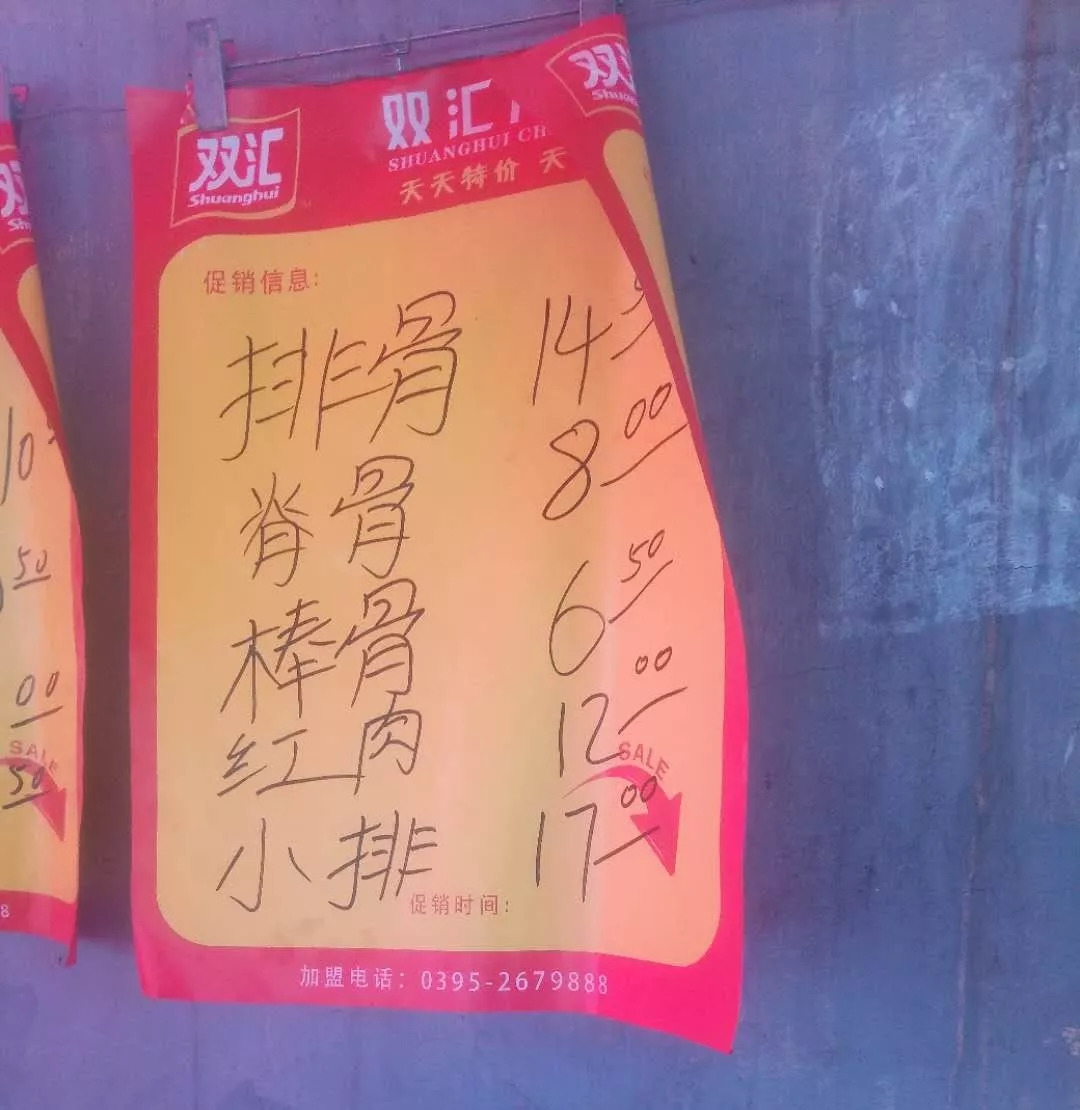 双汇
Shuanghui
双汇
SHUANGHUI CH
天天特价 天
双汇
促销信息:
排骨 14
脊骨 8.00
棒骨 6.50
红肉 12.00
小排 17.00
SALE
促销时间:
加盟电话: 0395-2679888
10
50
00
SALE
50
8